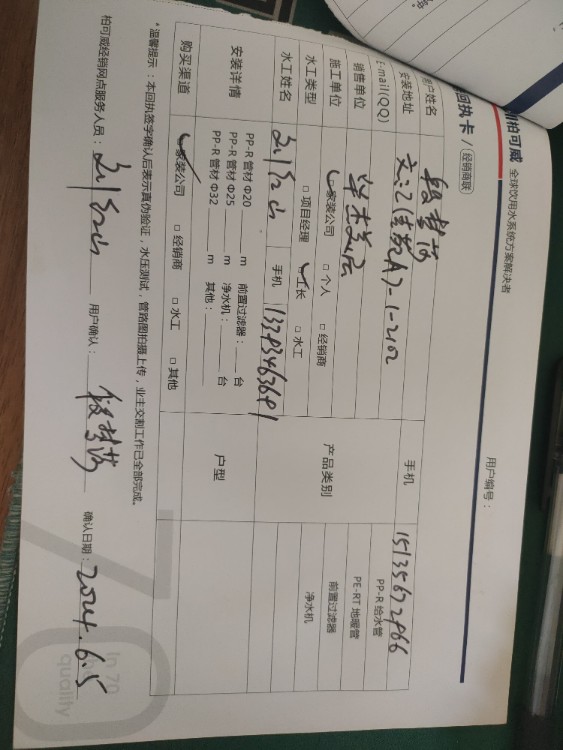 柏可威 全球饮用水系统方案解决者
回执卡 / 经销商联
用户编号：
用户姓名
手机 15135672966
安装地址 文汇佳苑A7-1-2102
E-mail(QQ)
销售单位
施工单位 □家装公司 □个人 □经销商
产品类别 PP-R 给水管
PE-RT 地暖管
前置过滤器
净水机
水工类型 □项目经理 □工长 □水工
水工姓名 刘红山 手机
安装详情 PP-R 管材 Φ20 m 前置过滤器： 台
PP-R 管材 Φ25 m 净水机： 台
PP-R 管材 Φ32 m 其他：
户型
购买渠道 □家装公司 □经销商 □水工 □其他
*温馨提示：本回执签字确认后表示真伪验证，水压测试，管路图拍摄上传，业主交割工作已全部完成。
柏可威经销网点服务人员：刘红山 用户确认： 确认日期：2024.6.5
In 70
quality